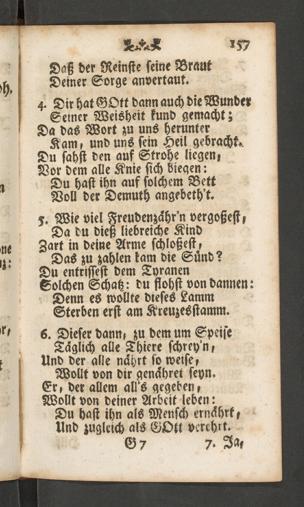 157
Daß der Reinste seine Braut
Deiner Sorge anvertaut.
4. Dir hat GOtt dann auch die Wunder
Seiner Weisheit kund gemacht;
Da das Wort zu uns herunter
Kam, und uns sein Heil gebracht.
Du sahst den auf Strohe liegen,
Vor dem alle Knie sich biegen:
Du hast ihn auf solchem Bett
Voll der Demuth angebeth't.
5. Wie viel Freudenzähr'n vergoßest,
Da du dieß liebreiche Kind
Zart in deine Arme schloßest,
Das zu zahlen kam die Sünd?
Du entrissest dem Tyranen
Solchen Schatz: du flohst von dannen:
Denn es wollte dieses Lamm
Sterben erst am Kreuzesstamm.
6. Dieser dann, zu dem um Speise
Täglich alle Thiere schrey'n,
Und der alle nährt so weise,
Wollt von dir genähret seyn.
Er, der allem all's gegeben,
Wollt von deiner Arbeit leben:
Du hast ihn als Mensch ernährt,
Und zugleich als GOtt verehrt.
G 7 7. Ja,